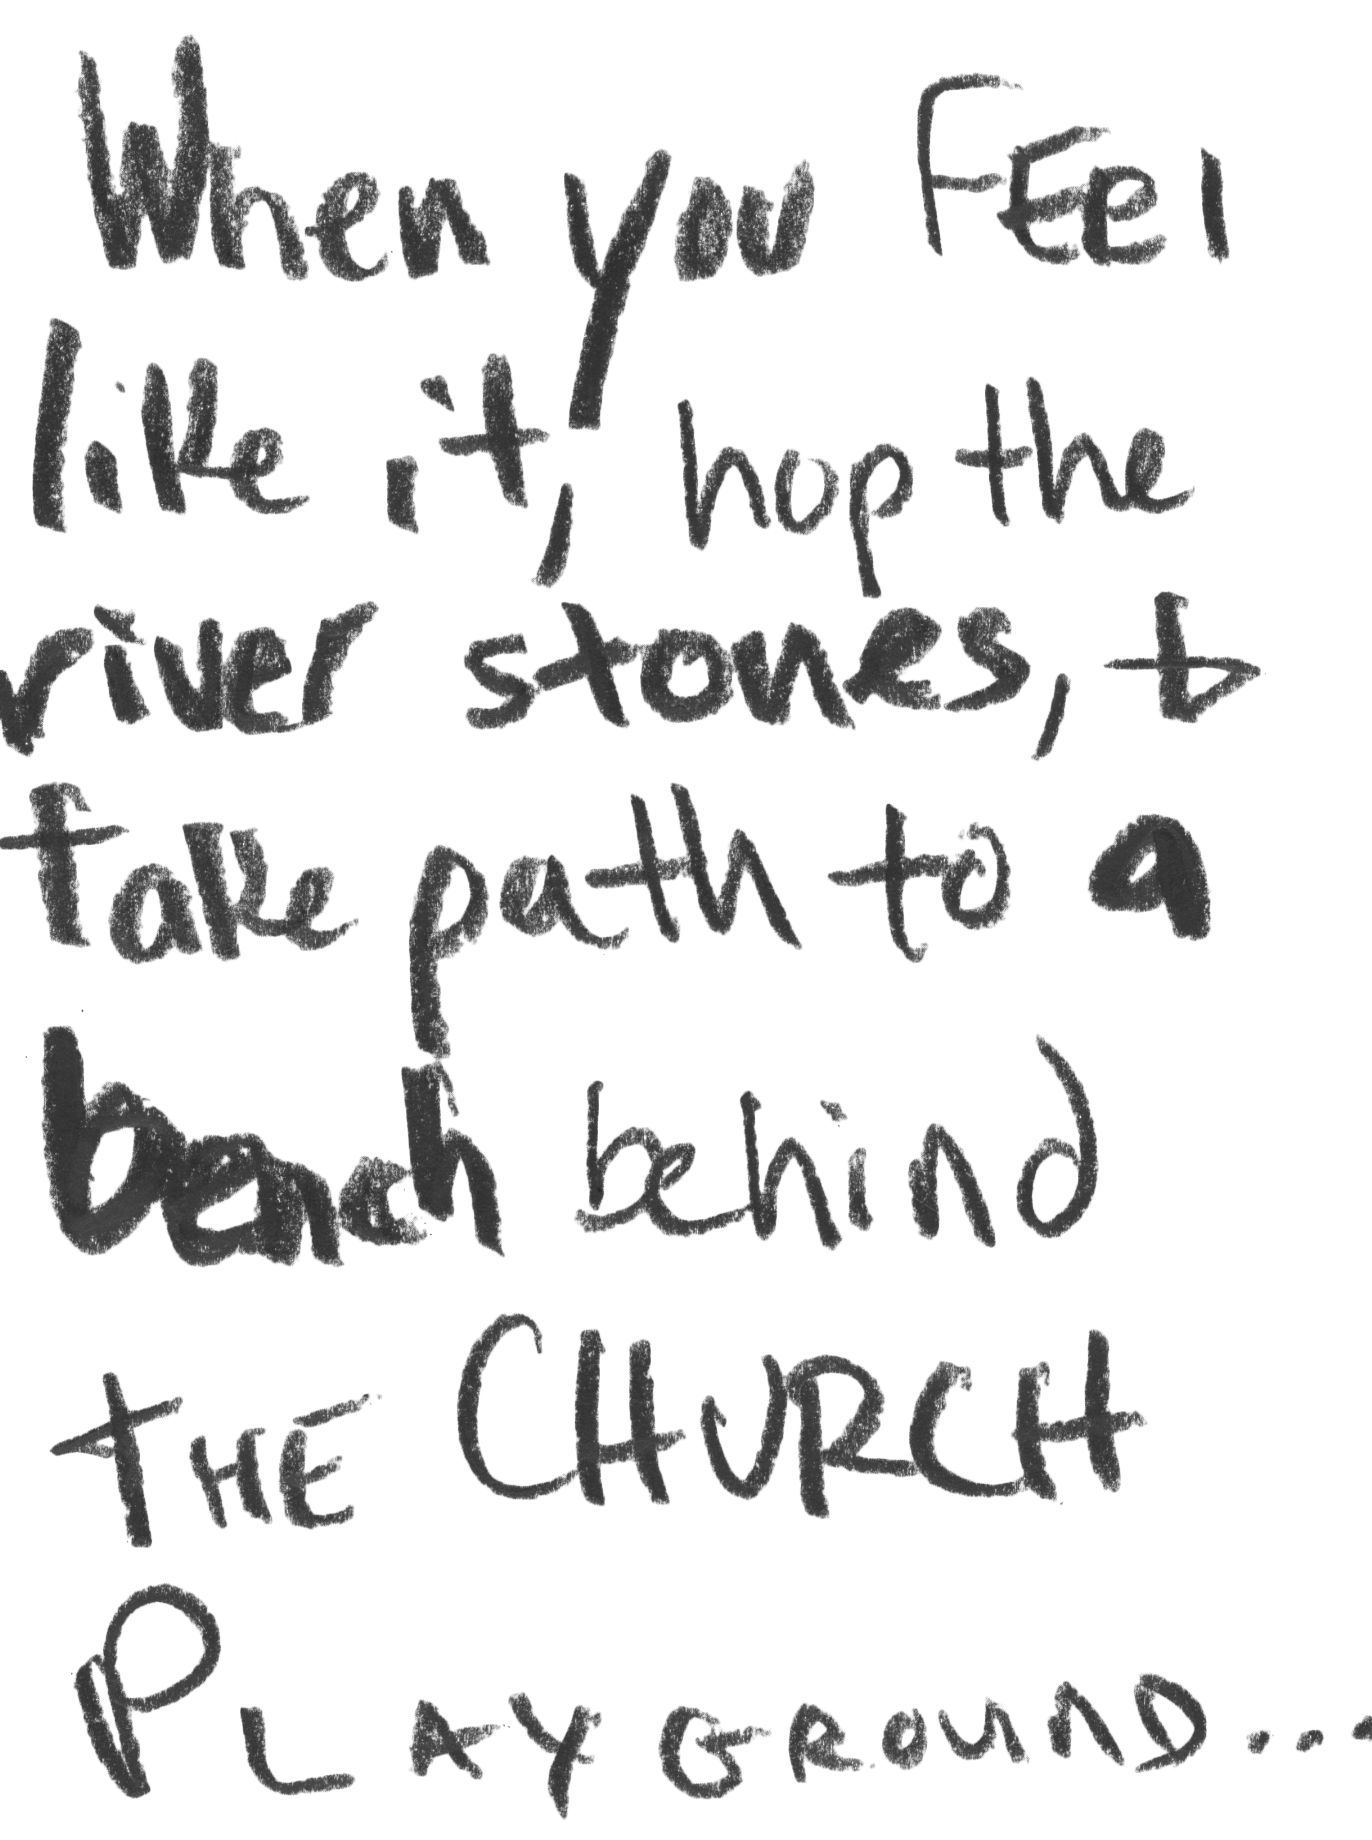 When you FEEl
like it, hop the
river stones, &
take path to a
bench behind
THE CHURCH
PLAYGROUND...